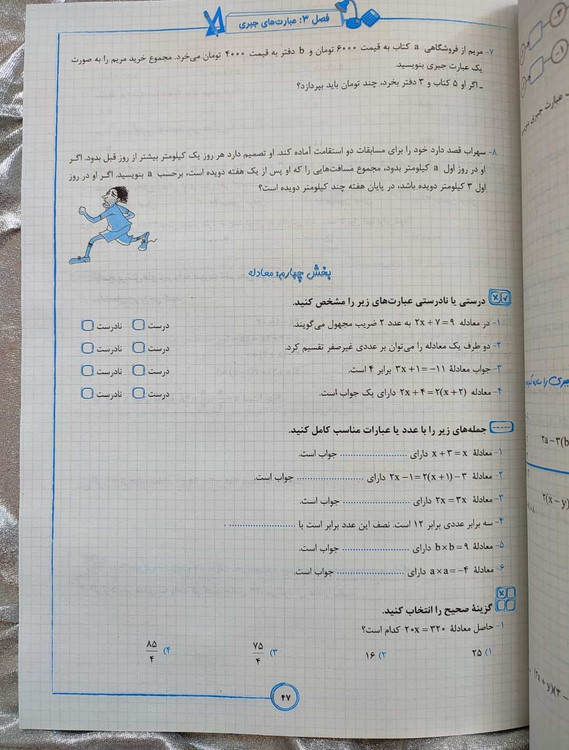 فصل ۳: عبارت‌های جبری
۷- مریم از فروشگاهی a کتاب به قیمت ۶۰۰۰ تومان و b دفتر به قیمت ۴۰۰۰ تومان می‌خرد. مجموع خرید مریم را به صورت
یک عبارت جبری بنویسید.
ـ اگر او ۵ کتاب و ۳ دفتر بخرد، چند تومان باید بپردازد؟
۸- سهراب قصد دارد خود را برای مسابقات دو استقامت آماده کند. او تصمیم دارد هر روز یک کیلومتر بیشتر از روز قبل بدود. اگر
او در روز اول a کیلومتر بدود، مجموع مسافت‌هایی را که او پس از یک هفته دویده است، برحسب a بنویسید. اگر او در روز
اول ۳ کیلومتر دویده باشد، در پایان هفته چند کیلومتر دویده است؟
بخش چهارم: معادله
درستی یا نادرستی عبارت‌های زیر را مشخص کنید.
۱- در معادله ۲x + ۷ = ۹ به عدد ۲ ضریب مجهول می‌گویند. درست نادرست
۲- دو طرف یک معادله را می‌توان بر عددی غیرصفر تقسیم کرد. درست نادرست
۳- جواب معادلهٔ ۳x + ۱ = -۱۱ برابر ۴ است. درست نادرست
۴- معادله ۲x + ۴ = ۲(x + ۲) دارای یک جواب است. درست نادرست
جمله‌های زیر را با عدد یا عبارات مناسب کامل کنید.
۱- معادلهٔ x + ۳ = x دارای .................... جواب است.
۲- معادلهٔ ۲x - ۱ = ۲(x + ۱) - ۳ دارای .................... جواب است.
۳- معادلهٔ ۲x = ۳x دارای .................... جواب است.
۴- سه برابر عددی برابر ۱۲ است. نصف این عدد برابر است با .................... .
۵- معادلهٔ b × b = ۹ دارای .................... جواب است.
۶- معادلهٔ a × a = -۴ دارای .................... جواب است.
گزینهٔ صحیح را انتخاب کنید.
۱- حاصل معادلهٔ ۲۰x = ۳۲۰ کدام است؟
۱) ۲۵ ۲) ۱۶ ۳) ۷۵/۴ ۴) ۸۵/۴
۴۷
۲a - ۳(b
۲(x - y)